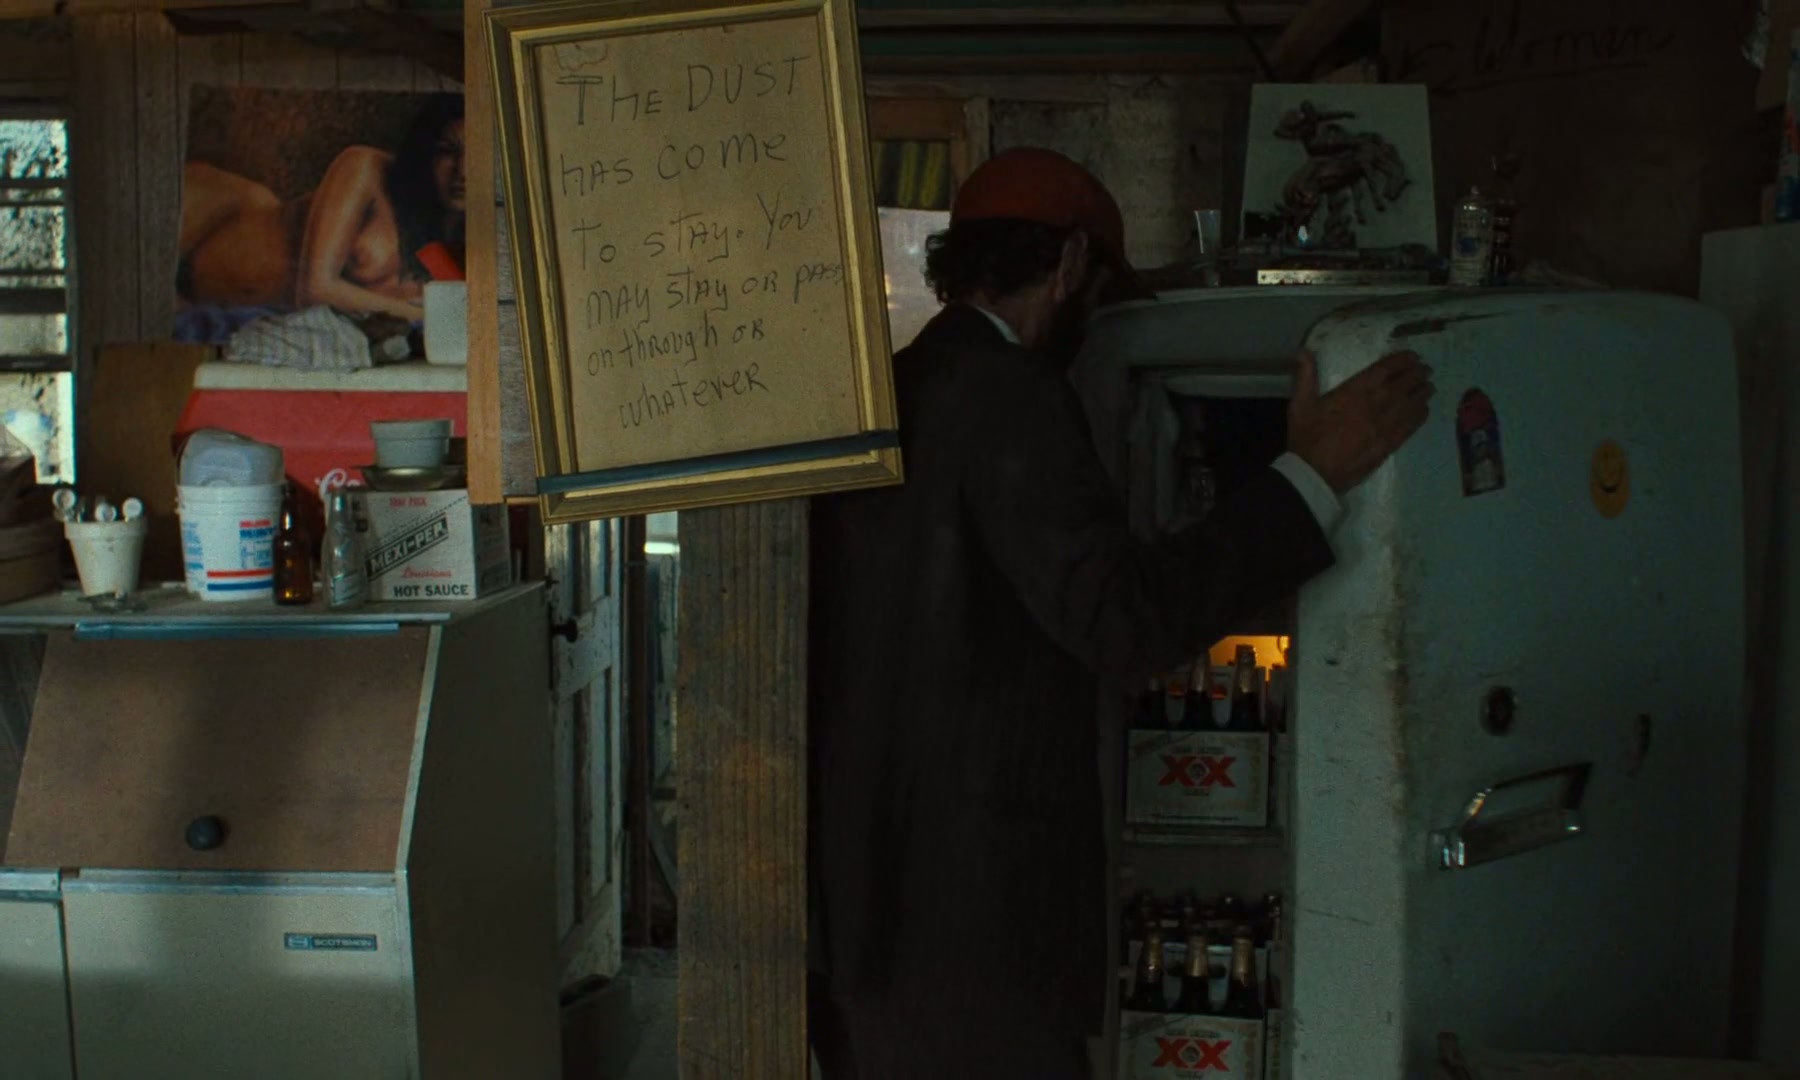 THE DUST
HAS COME
TO STAY. YOU
MAY STAY OR PASS
on through OR
whatever
Woman
MEXI-PEP
Louisiana
HOT SAUCE
SCOTSMAN
XX
XX